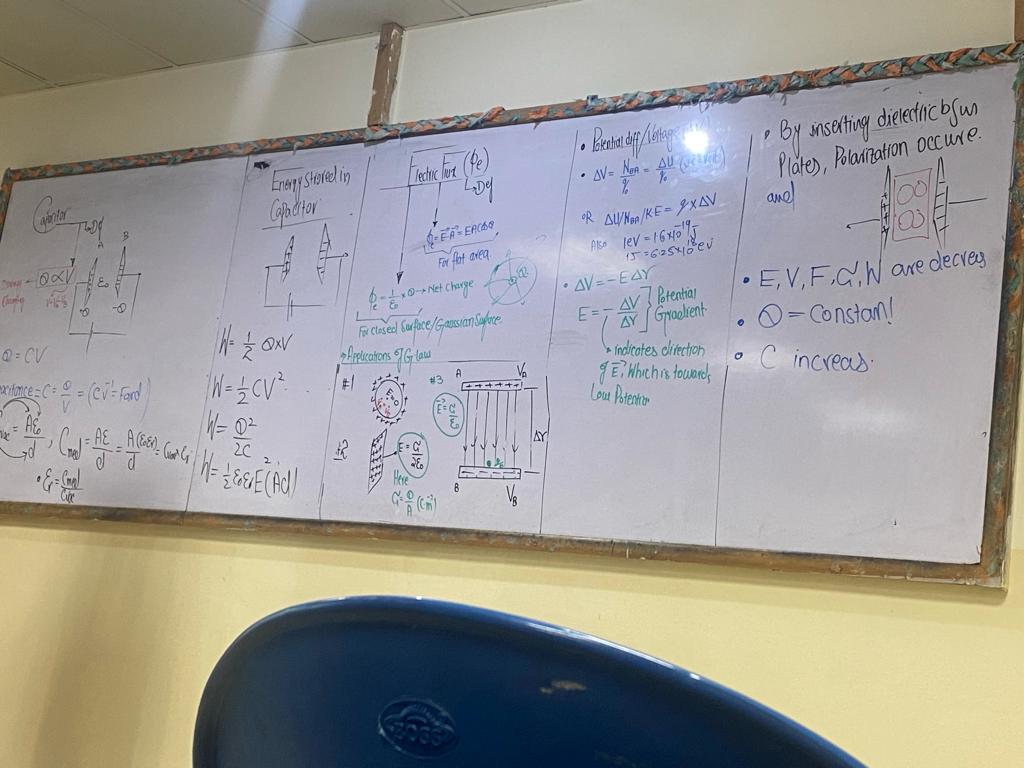 Capacitor
Def
B
Q ∝ V
ε₀
+Q
-Q
Q = CV
C = Q/V = (CV⁻¹ = Farad)
= Aε₀/d , Cmed = Aε/d = A(ε₀εᵣ)/d = Cvac εᵣ
• εᵣ = Cmed/Cvac
Energy stored in
Capacitor
W = 1/2 Q×V
W = 1/2 CV²
W = Q²/2C
W = 1/2 ε₀εᵣE²(Ad)
Electric Flux (φe)
Def
φe = E⃗·A⃗ = EAcosθ
For flat area.
φe = 1/ε₀ × Q → Net charge
For closed Surface/Gaussian Surface.
→ Applications of G-law
#1
E=0
#2
E = σ/2ε₀
Here
σ = Q/A (Cm⁻²)
#3
A
VA
E⃗ = σ/ε₀
Δr
B
VB
• Potential diff/Voltage
• ΔV = WBA/q₀ = ΔU/q₀
OR ΔU/WBA/KE = q×ΔV
Also 1eV = 1.6×10⁻¹⁹J
1J = 6.25×10¹⁸eV
• ΔV = -EΔr
E = -ΔV/Δr ] Potential Gradient
Indicates direction
of E⃗. Which is towards
Low Potential
• By inserting dielectric b/w
Plates, Polarization occure.
and
• E, V, F, σ, W are decreas
• Q = Constan!
• C increas.
BOSS